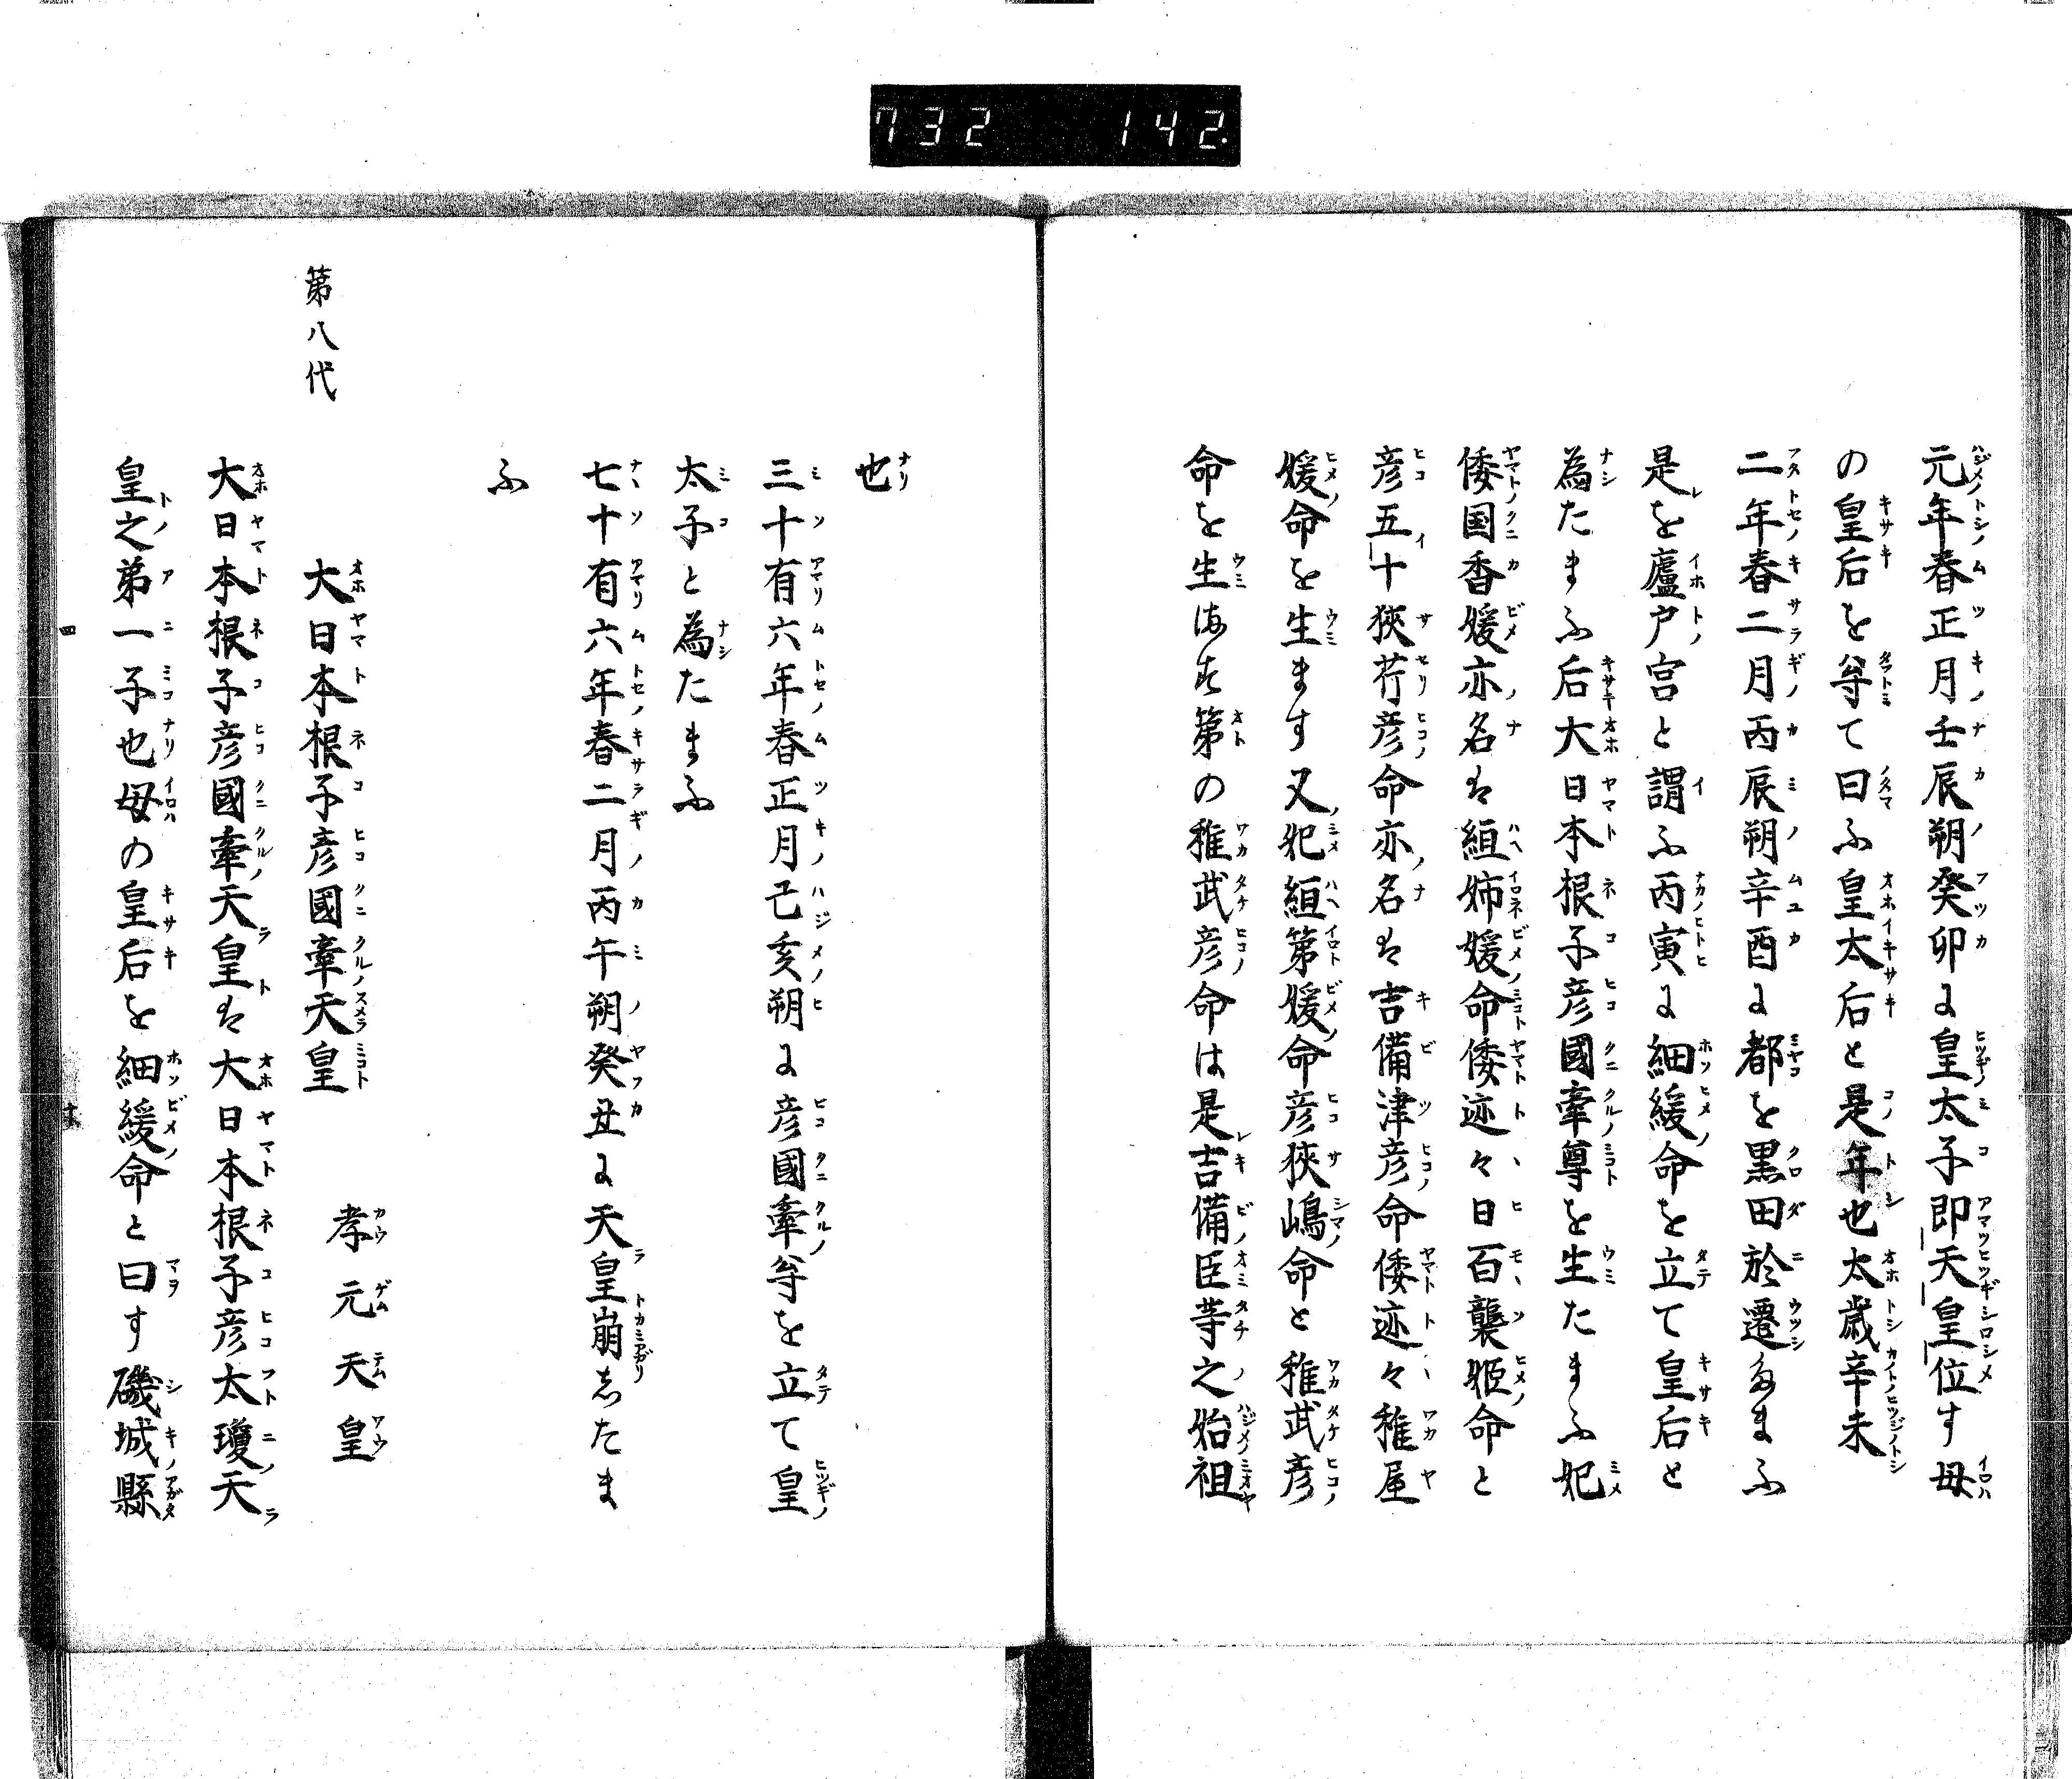 732 142.
元年春正月壬辰朔癸卯に皇太子即天皇位す母
の皇后を尊て曰ふ皇太后と是年也太歳辛未
二年春二月丙辰朔辛酉に都を黒田於遷たまふ
是を廬戸宮と謂ふ丙寅に細媛命を立て皇后と
為たまふ后大日本根子彦國牽尊を生たまふ妃
倭国香媛亦名は絙姉媛命倭迹々日百襲姫命と
彦五十狹芹彦命亦名は吉備津彦命倭迹々稚屋
媛命を生ます又妃絙弟媛命彦狹嶋命と稚武彦
命を生ます弟の稚武彦命は是吉備臣等之始祖
也
三十有六年春正月己亥朔に彦國牽尊を立て皇
太子と為たまふ
七十有六年春二月丙午朔癸丑に天皇崩したま
ふ
第八代
大日本根子彦國牽天皇 孝元天皇
大日本根子彦國牽天皇は大日本根子彦太瓊天
皇之弟一子也母の皇后を細媛命と曰す磯城縣